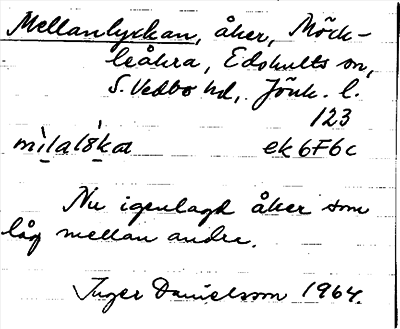 Mellanlyckan, åker, Mörk-
leåkra, Edshults sn,
S. Vedbo hd, Jönk. l.
123
ek 6F6c
Nu igenlagd åker som
låg mellan andra.
Inger Danielsson 1964.